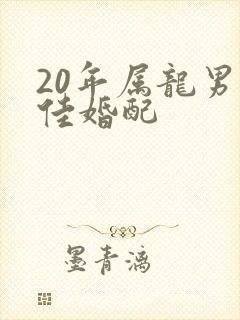 20年属龍男
佳婚配
墨青漓